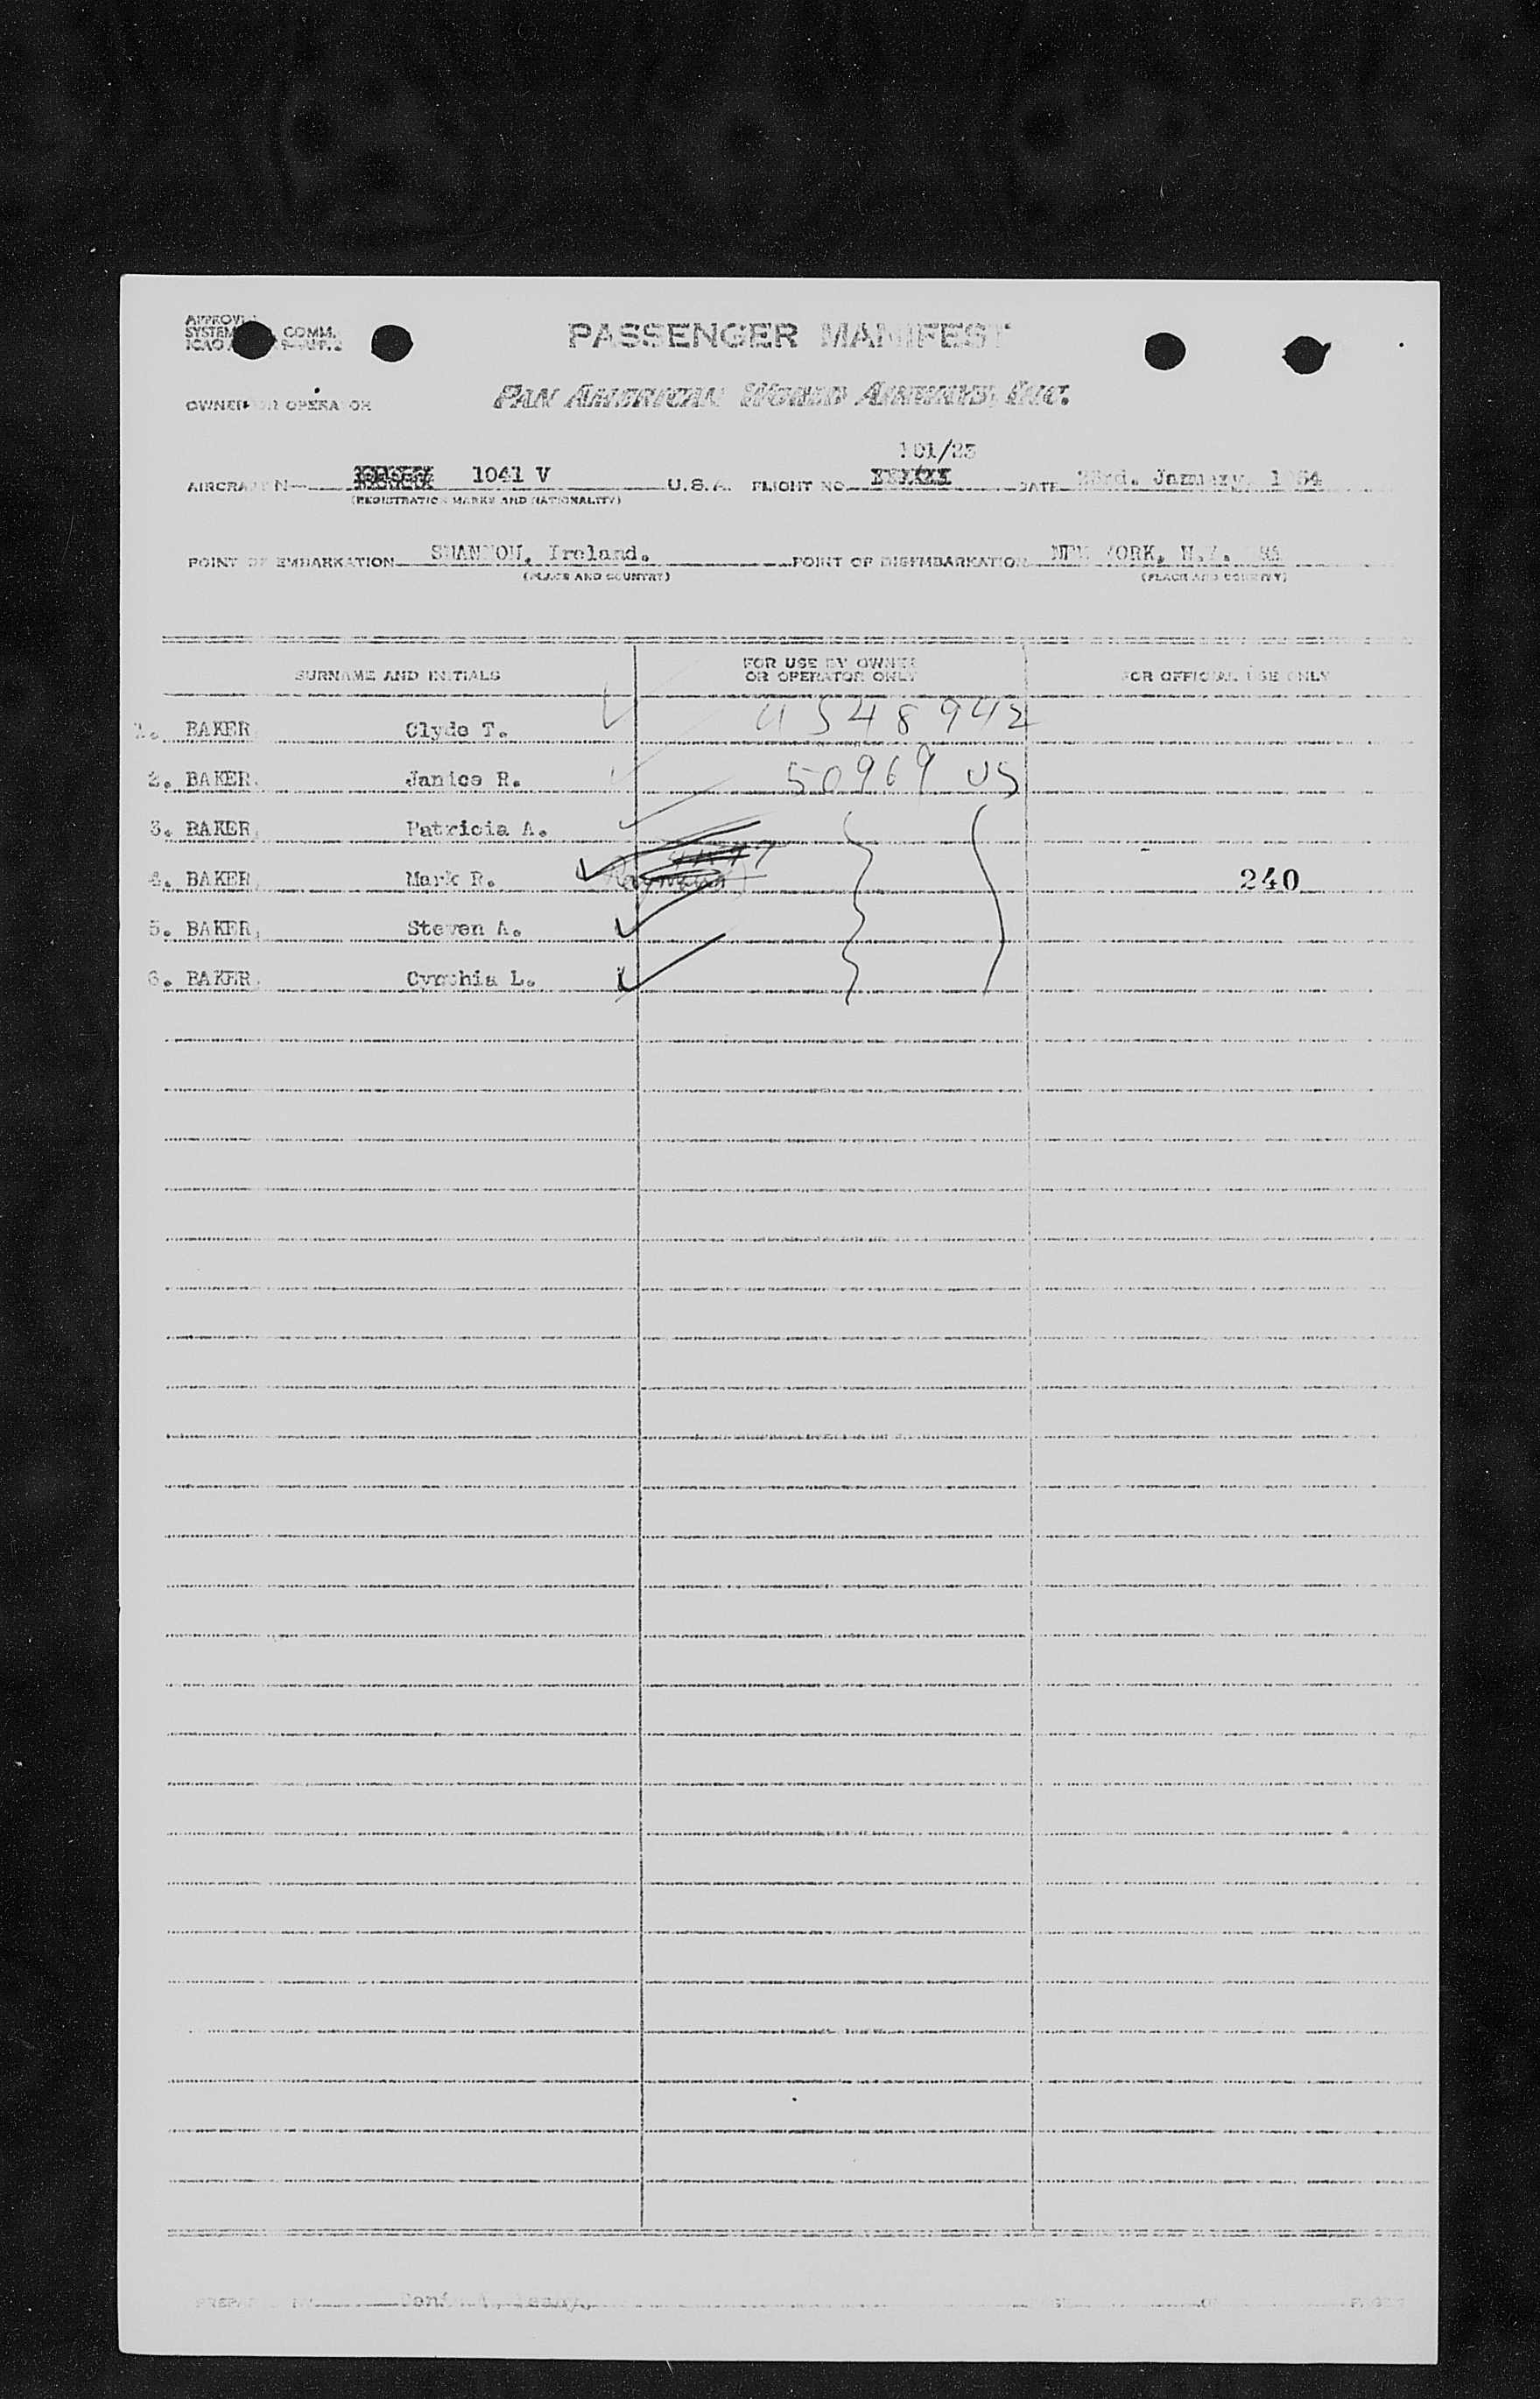 APPROVED
SYSTEM COMM.
ICAO
PASSENGER MANIFEST
OWNER OR OPERATOR PAN AMERICAN WORLD AIRWAYS, INC.
101/23
AIRCRAFT N— 1041 V U.S.A. FLIGHT NO. DATE 23rd. January, 1954
(REGISTRATION MARKS AND NATIONALITY)
POINT OF EMBARKATION SHANNON, Ireland. POINT OF DISEMBARKATION NEW YORK, N.Y. USA
(PLACE AND COUNTRY) (PLACE AND COUNTRY)
SURNAME AND INITIALS FOR USE BY OWNER OR OPERATOR ONLY FOR OFFICIAL USE ONLY
1. BAKER, Clyde T. U S 48942
2. BAKER, Janice R. 50969 US
3. BAKER, Patricia A.
4. BAKER, Mark R. 240
5. BAKER, Steven A.
6. BAKER, Cynthia L.
PREPARED BY